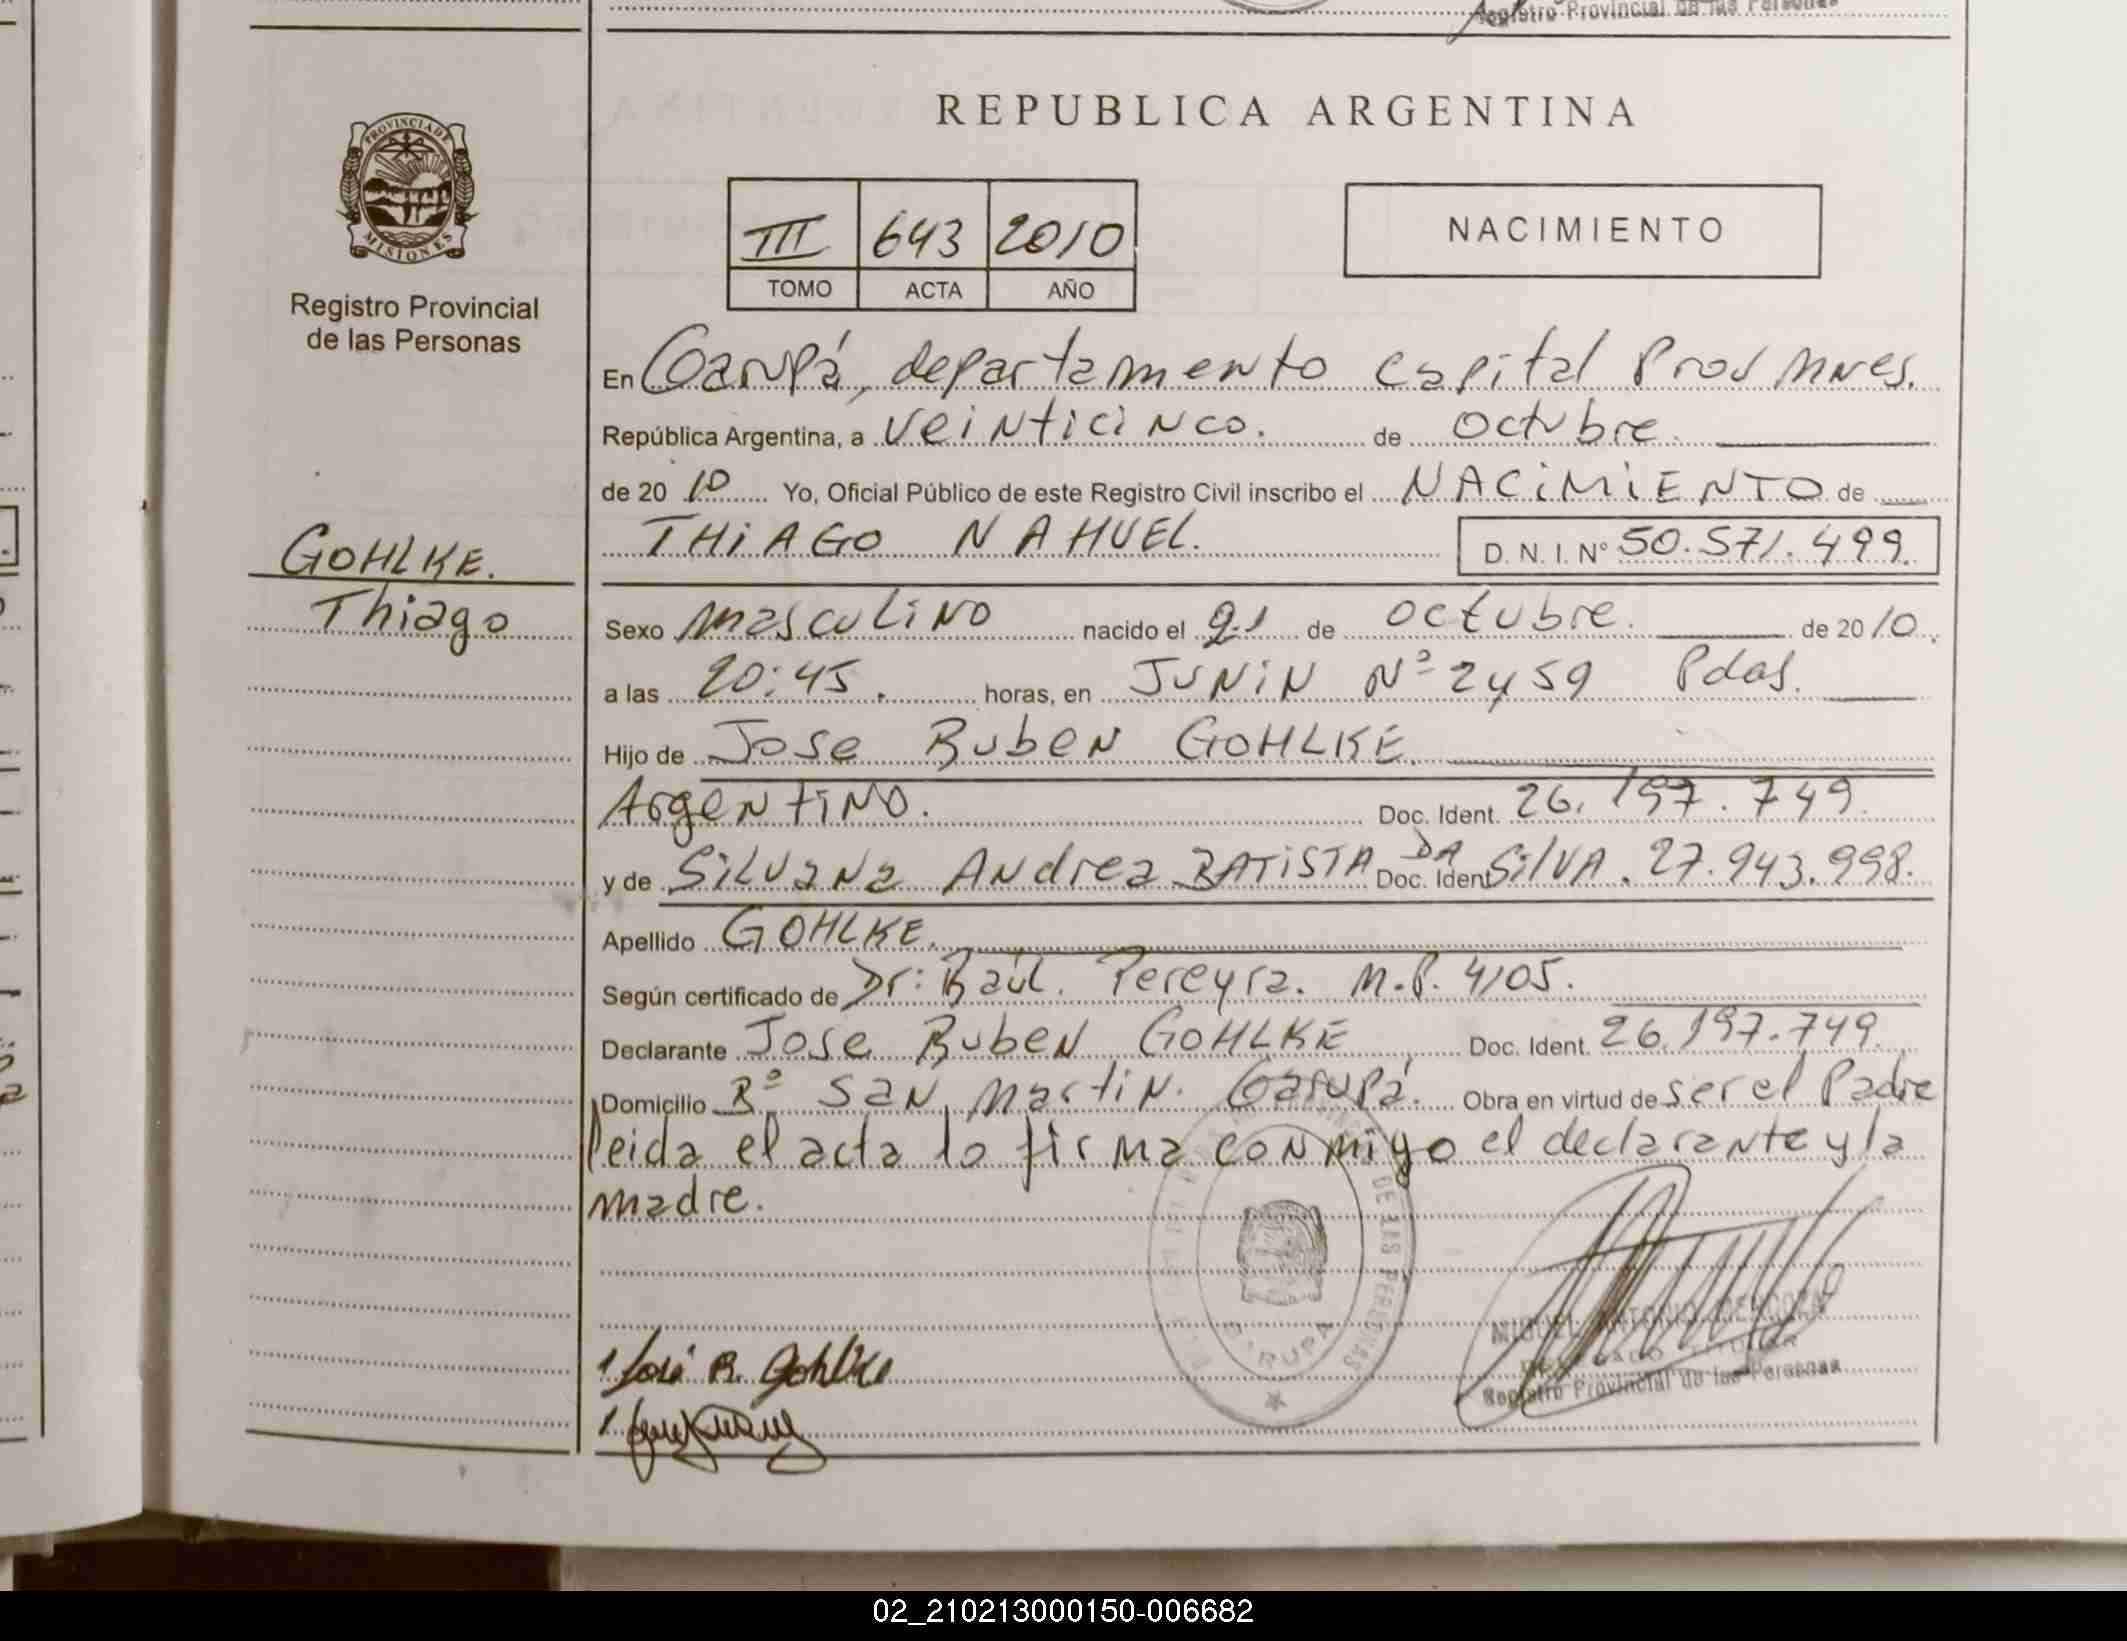 Registro Provincial de las Personas
REPUBLICA ARGENTINA
PROVINCIA DE
MISIONES
Registro Provincial
de las Personas
III 643 2010
TOMO ACTA AÑO
NACIMIENTO
En Garupá, departamento Capital Prov Mnes.
República Argentina, a veinticinco. de octubre.
de 20 10 Yo, Oficial Público de este Registro Civil inscribo el NACIMIENTO de
THIAGO NAHUEL. D. N. I. Nº 50.571.499.
GOHLKE.
Thiago
Sexo masculino nacido el 21 de octubre. de 20 10
a las 20:45. horas, en JUNIN Nº 2459 Pdas.
Hijo de Jose Ruben GOHLKE.
Argentino. Doc. Ident. 26.197.749.
y de Silvana Andrea BATISTA DA SILVA. Doc. Ident 27.943.998.
Apellido GOHLKE.
Según certificado de Dr: Raúl. Pereyra. M.P. 4105.
Declarante Jose Ruben GOHLKE Doc. Ident. 26.197.749.
Domicilio Bº San Martin. Garupá. Obra en virtud de ser el Padre
leida el acta la firma conmigo el declarante y la
madre.
DE LAS PERSONAS
GARUPA
1 José R. Gohlke
1
MIGUEL ANTONIO MENDOZA
DELEGADO TITULAR
Registro Provincial de las Personas
02_210213000150-006682